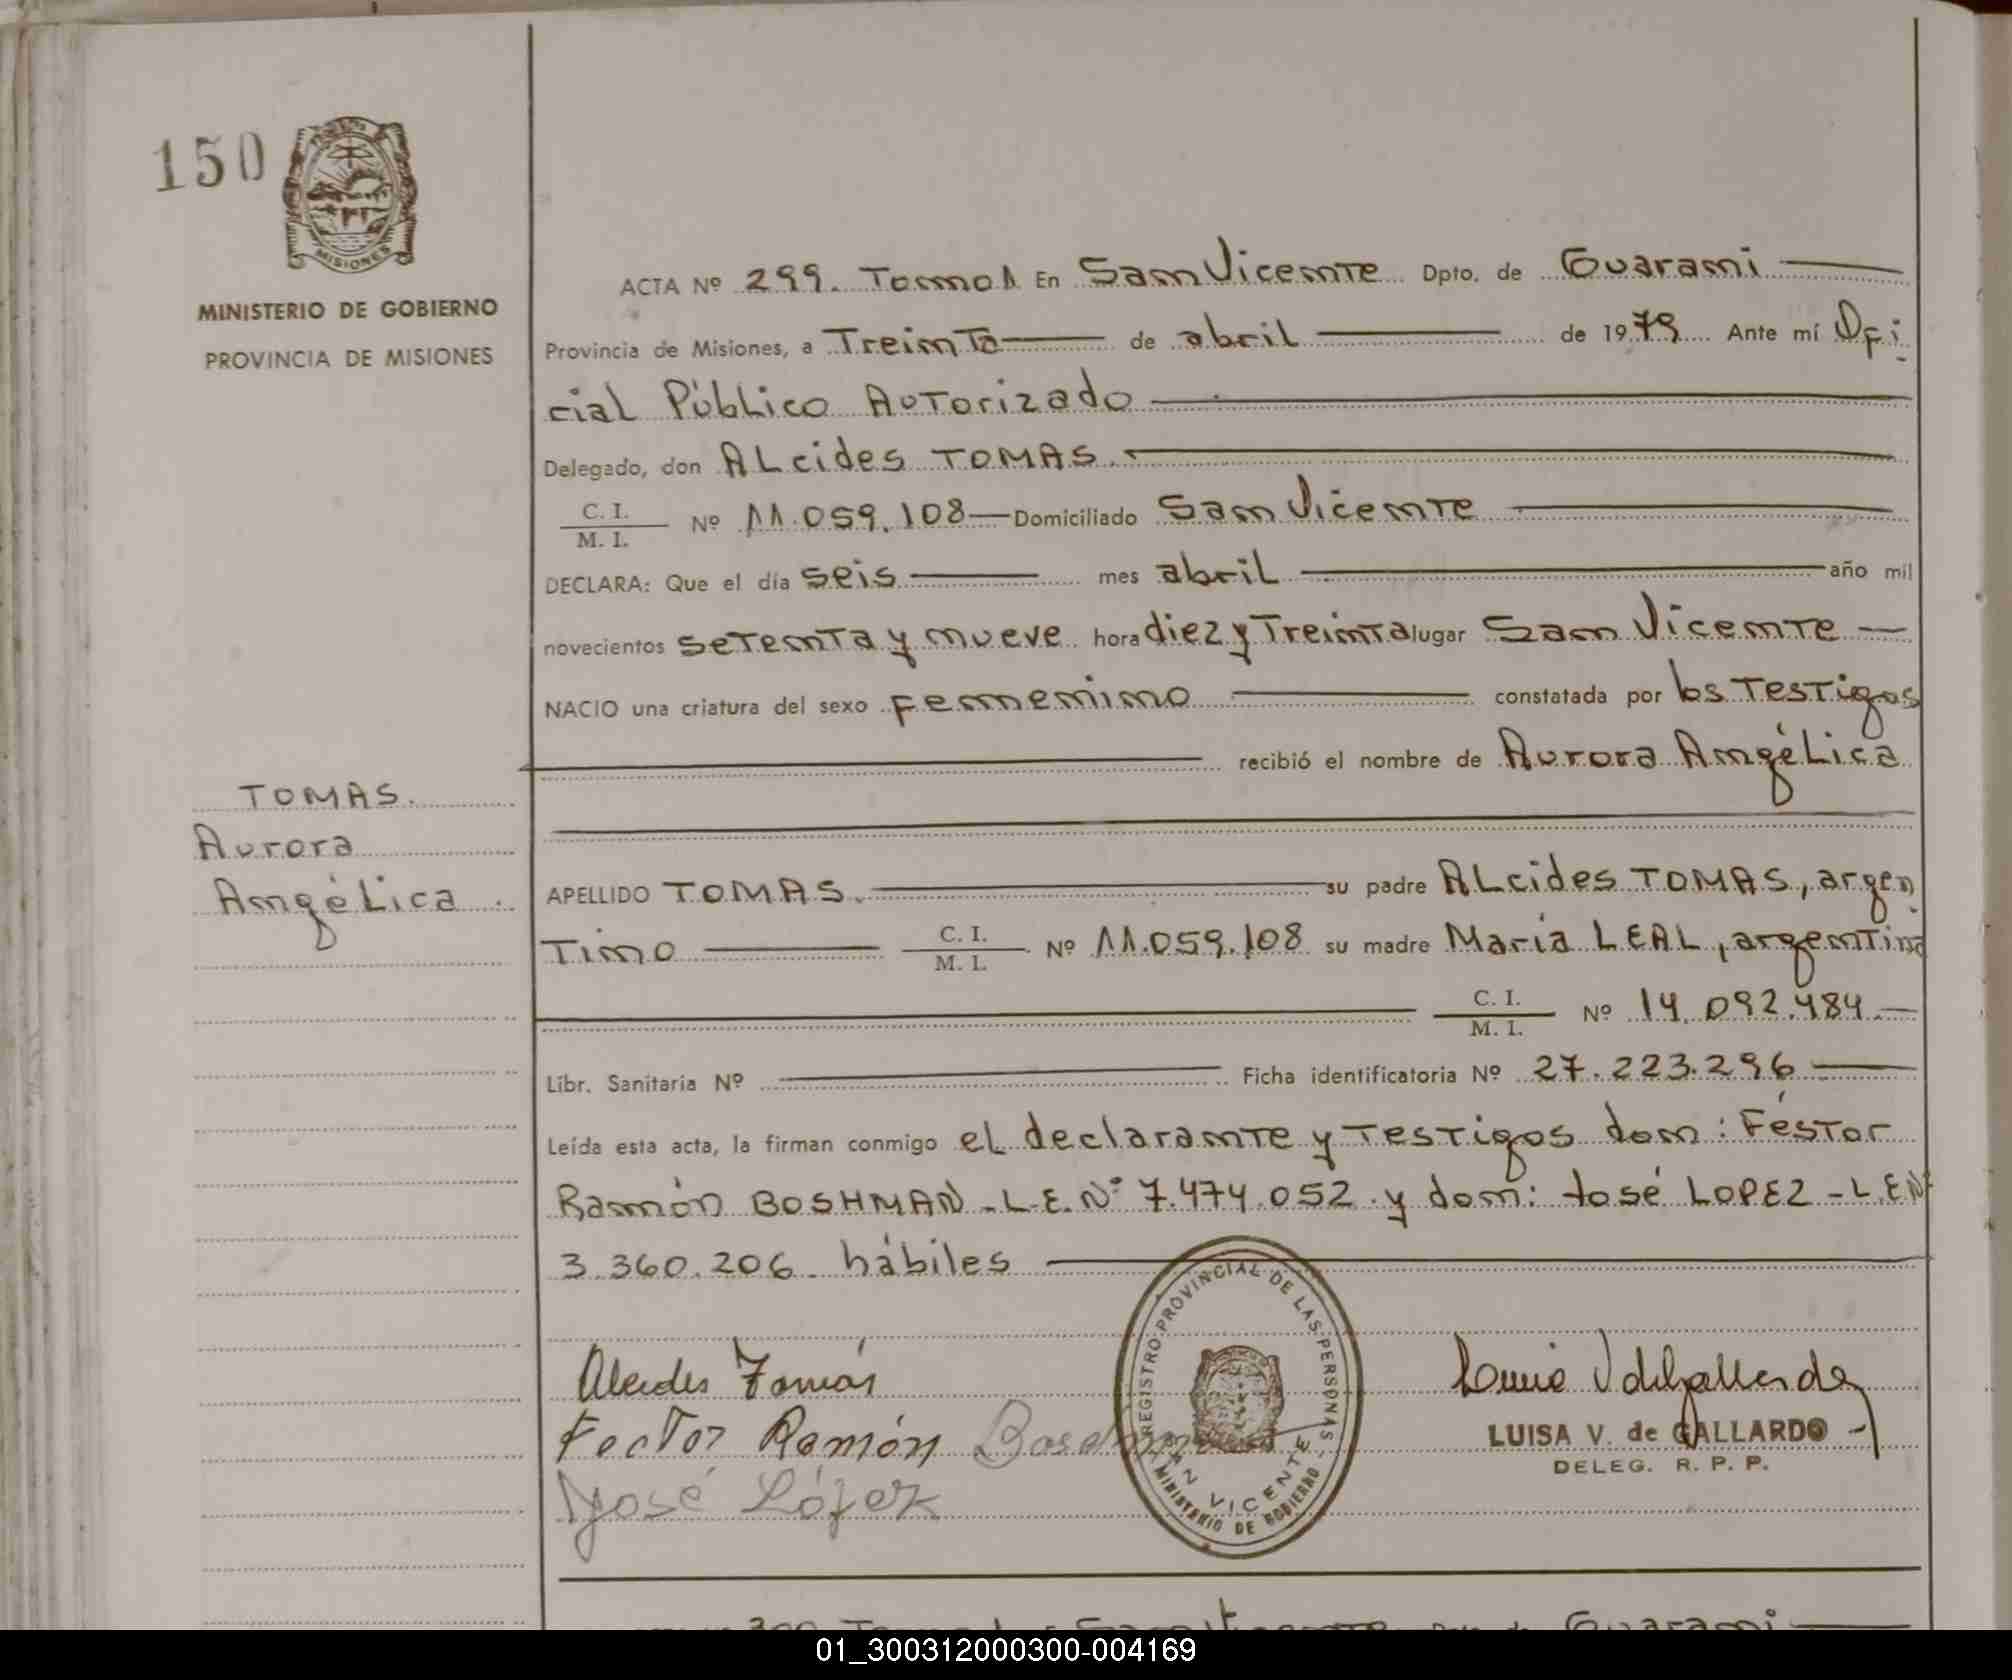 150
MISIONES
MINISTERIO DE GOBIERNO
PROVINCIA DE MISIONES
ACTA Nº 299. Tomo 1 En San Vicente Dpto. de Guarani
Provincia de Misiones, a Treinta de abril de 1979 Ante mí Ofi
cial Público Autorizado
Delegado, don ALcides TOMAS.
C. I.
M. I. Nº 11.059.108 Domiciliado San Vicente
DECLARA: Que el día seis mes abril año mil
novecientos setenta y nueve hora diez y Treinta lugar San Vicente
NACIO una criatura del sexo femenino constatada por los Testigos
recibió el nombre de Aurora Angélica
TOMAS.
Aurora
Angélica
APELLIDO TOMAS. su padre ALcides TOMAS, argen
Tino C. I.
M. I. Nº 11.059.108 su madre María LEAL, argentina
C. I.
M. I. Nº 14.092.484
Libr. Sanitaria Nº Ficha identificatoria Nº 27.223.296
Leída esta acta, la firman conmigo el declarante y Testigos don: Féstor
Ramón BOSHMAN - L.E. Nº 7.474.052 y don: José LOPEZ - L.E Nº
3.360.206. hábiles
Alcides Tomás
Fector Ramón
José López
REGISTRO PROVINCIAL DE LAS PERSONAS
SAN VICENTE
MINISTERIO DE GOBIERNO
LUISA V. de GALLARDO
DELEG. R. P. P.
300 Tomo 1 San Vicente Dpto. de Guarani
01_300312000300-004169